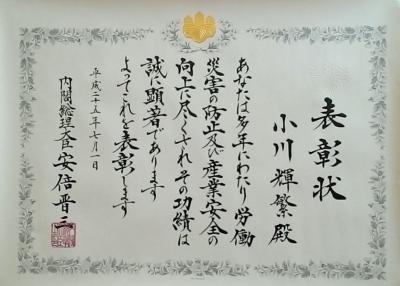 表彰状
小川輝繁殿
あなたは多年にわたり労働
災害の防止及び産業安全の
向上に尽くされその功績は
誠に顕著であります
よってこれを表彰します
平成二十五年七月一日
内閣総理大臣 安倍晋三